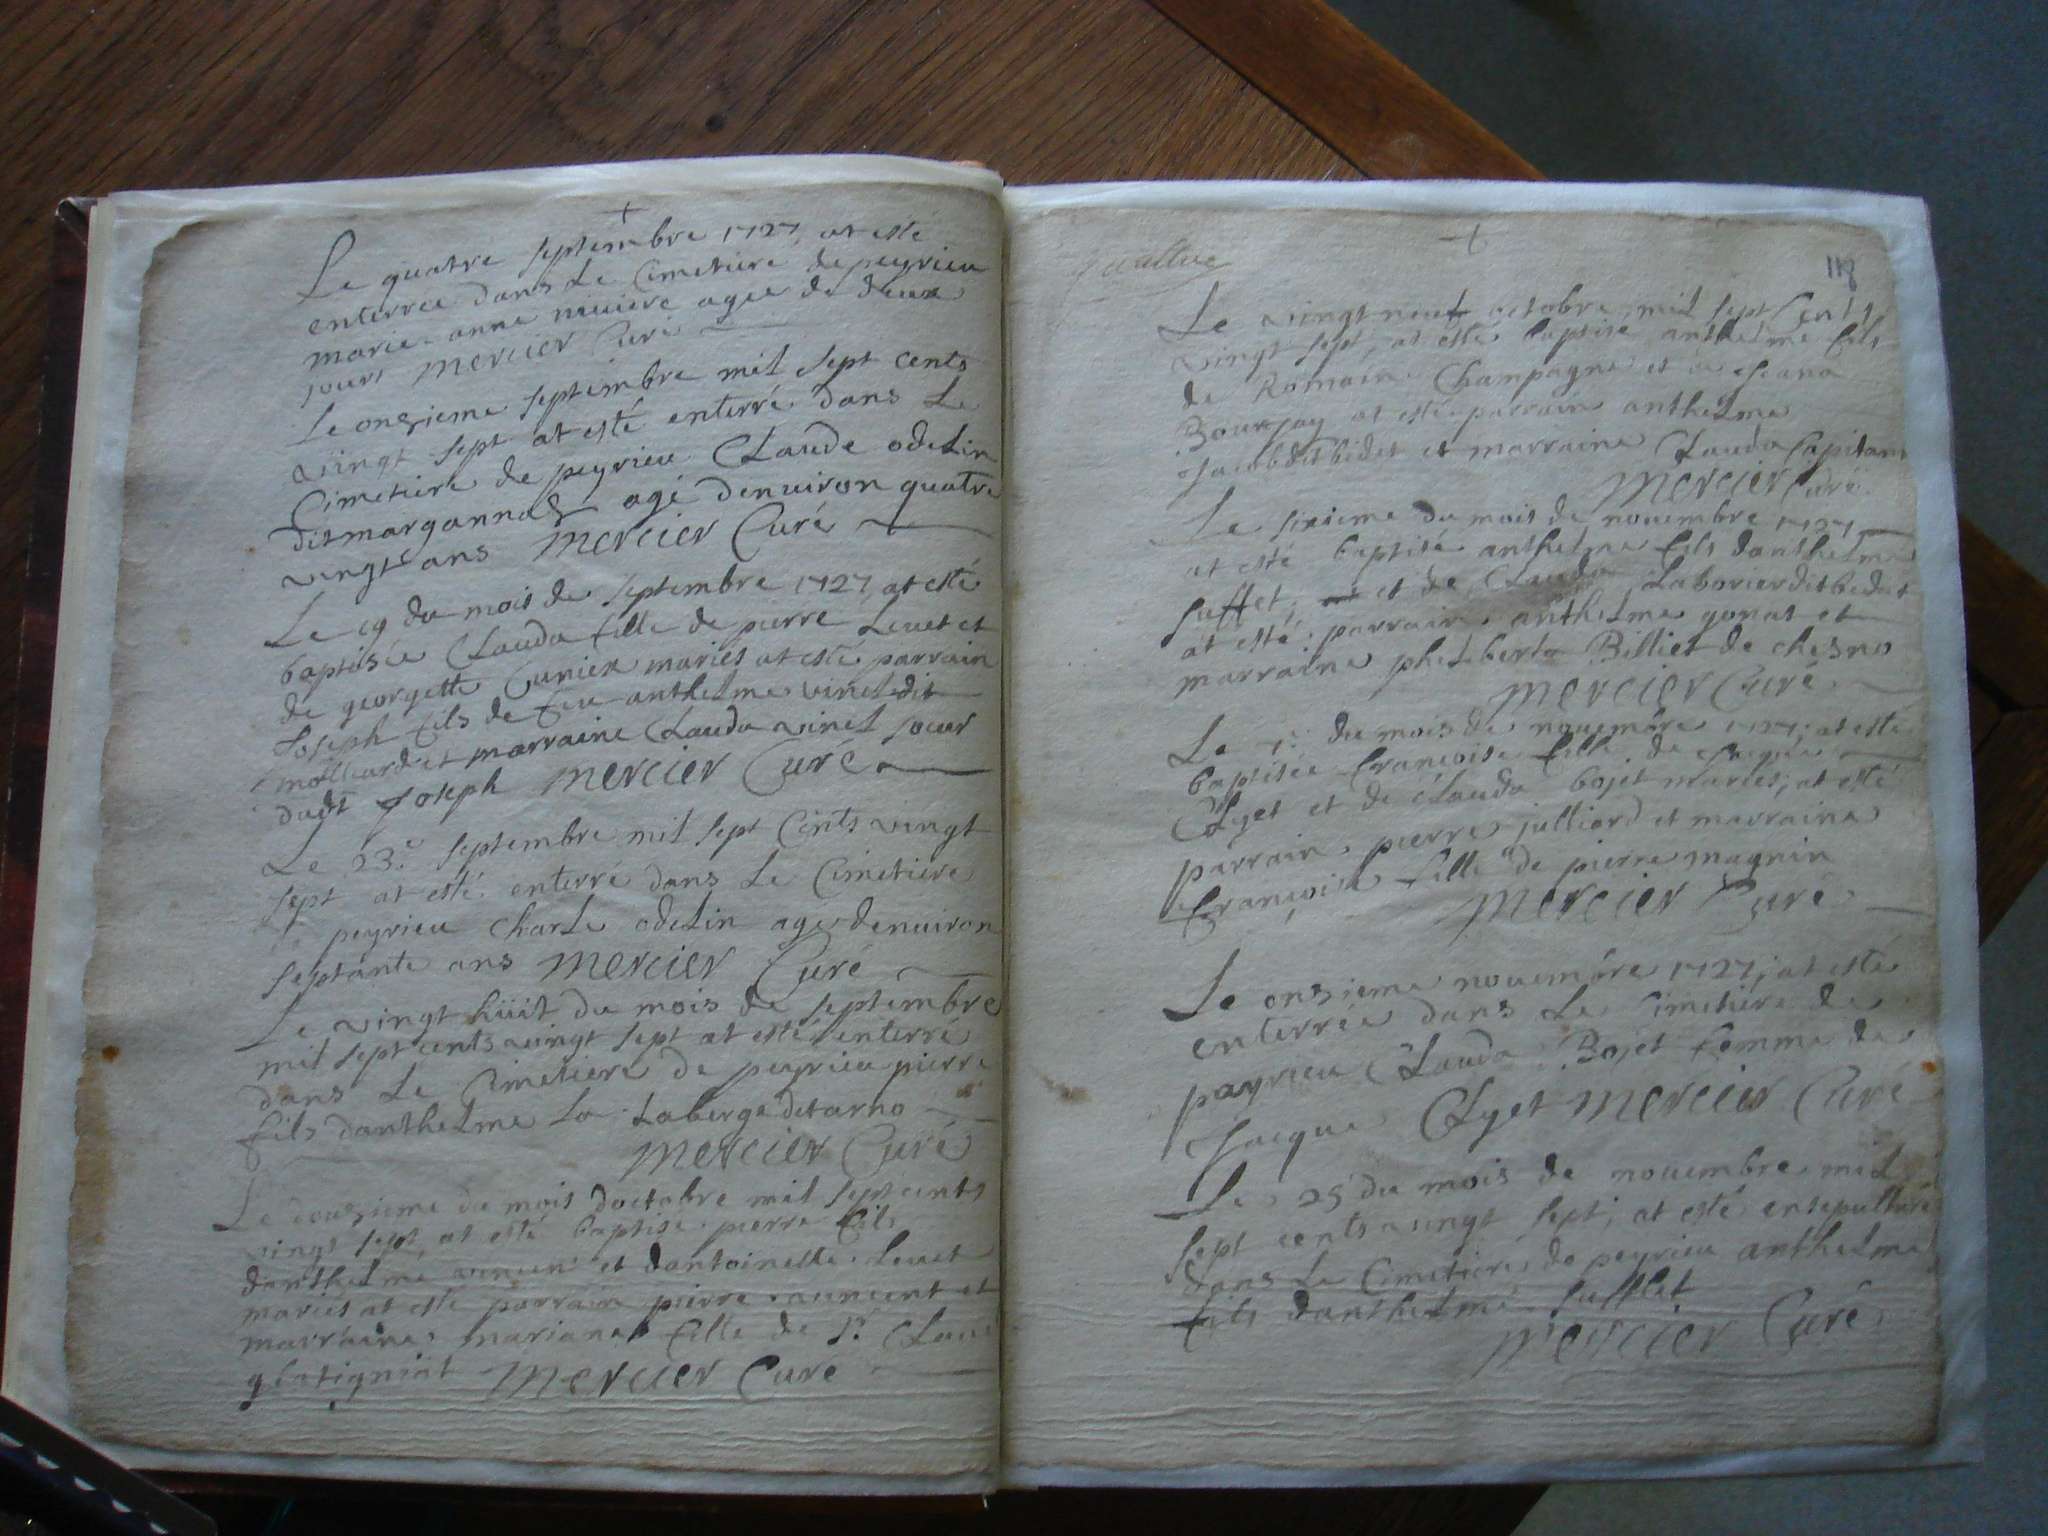 Le quatre septembre 1727, at esté
enterree dans Le Cimetiere de peyrieu
marie-anne niuiere agee de deux
jours mercier Curé
Le onzieme septembre mil sept cents
vingt sept at esté enterré dans Le
Cimetiere de peyrieu Claude odelin
dit agé denuiron quatre
vingt ans mercier Curé
Le 19 du mois de septembre 1727, at esté
baptisée Clauda fille de pierre Leuet et
de georgette Cunier mariés at esté parrain
Joseph fils de feu anthelme vinel dit
et marraine Clauda vinel soeur
dudt Joseph mercier Curé
Le 23.e septembre mil sept Cents vingt
sept at esté enterré dans Le Cimetiere
de peyrieu charle odelin age denuiron
septante ans mercier Curé
Le vingt huit du mois de septembre
mil sept cents vingt sept at esté enterré
dans Le Cimetiere de peyrieu pierre
fils danthelme La Laberge
mercier Curé
Le douzieme du mois doctobre mil sept cents
vingt sept, at esté baptisé pierre fils
danthelme et dantoinette Leuet
mariés at esté parrain pierre et
marraine mariane fille de
mercier Curé
118
Le vingt neuf octobre, mil sept Cents
vingt sept, at esté baptisé anthelme fils
de Romain Champagne et de Jeana
Bourjay at esté parrain anthelme
Jacob dit bidet et marraine Clauda Capitan
mercier Curé
Le sixieme du mois de nouembre 1727
at esté baptisé anthelme fils danthelme
suffet, et de Clauda Laborier dit bedat
at esté parrain anthelme gonat et
marraine pheliberta Billiet de chesno
mercier Curé
Le 7e du mois de nouembre 1727, at esté
baptisée françoise fille de Jacque
Clyet et de Clauda bojet mariés, at esté
parrain pierre julliard et marraine
françoise fille de pierre magnin
mercier Curé
Le onzieme nouembre 1727, at esté
enterrée dans Le Cimetiére de
payrieu Clauda Bojet femme de
Jacque Clyet mercier Curé
Le 25 du mois de nouembre mil
sept cents vingt sept, at esté ensepulturé
dans Le Cimetiere de peyrieu anthelme
fils danthelme sufflet
mercier Curé